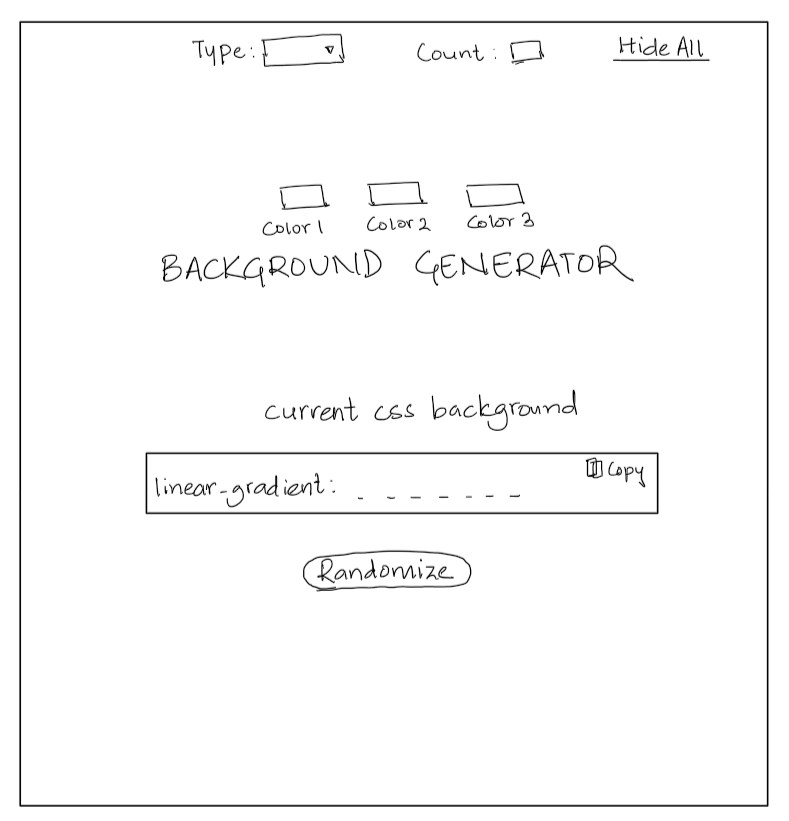 Type: Count: Hide All
Color 1 Color 2 Color 3
BACKGROUND GENERATOR
current css background
Copy
linear-gradient: _ _ _ _ _ _ _
Randomize